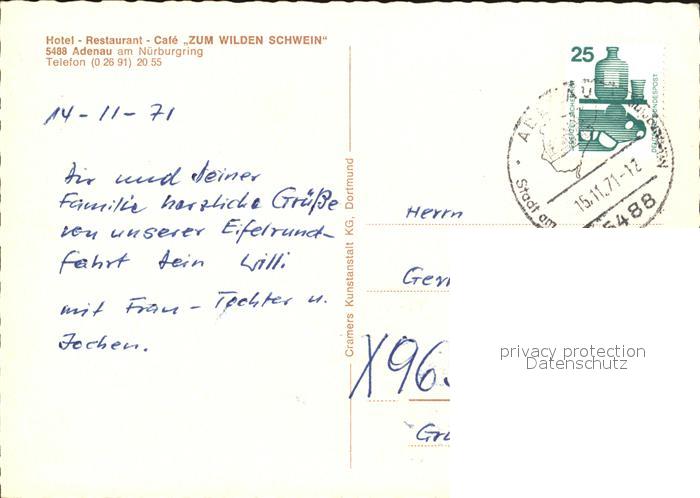 Hotel - Restaurant - Café „ZUM WILDEN SCHWEIN“
5488 Adenau am Nürburgring
Telefon (0 26 91) 20 55
14-11-71
Dir und deiner
Familie herzliche Grüße
von unserer Eifelrund-
fahrt dein Willi
mit Frau - Tochter u.
Jochen.
Cramers Kunstanstalt KG, Dortmund
25
DEUTSCHE BUNDESPOST
15.11.71-12
Stadt am
5488
Herrn
X96
privacy protection
Datenschutz